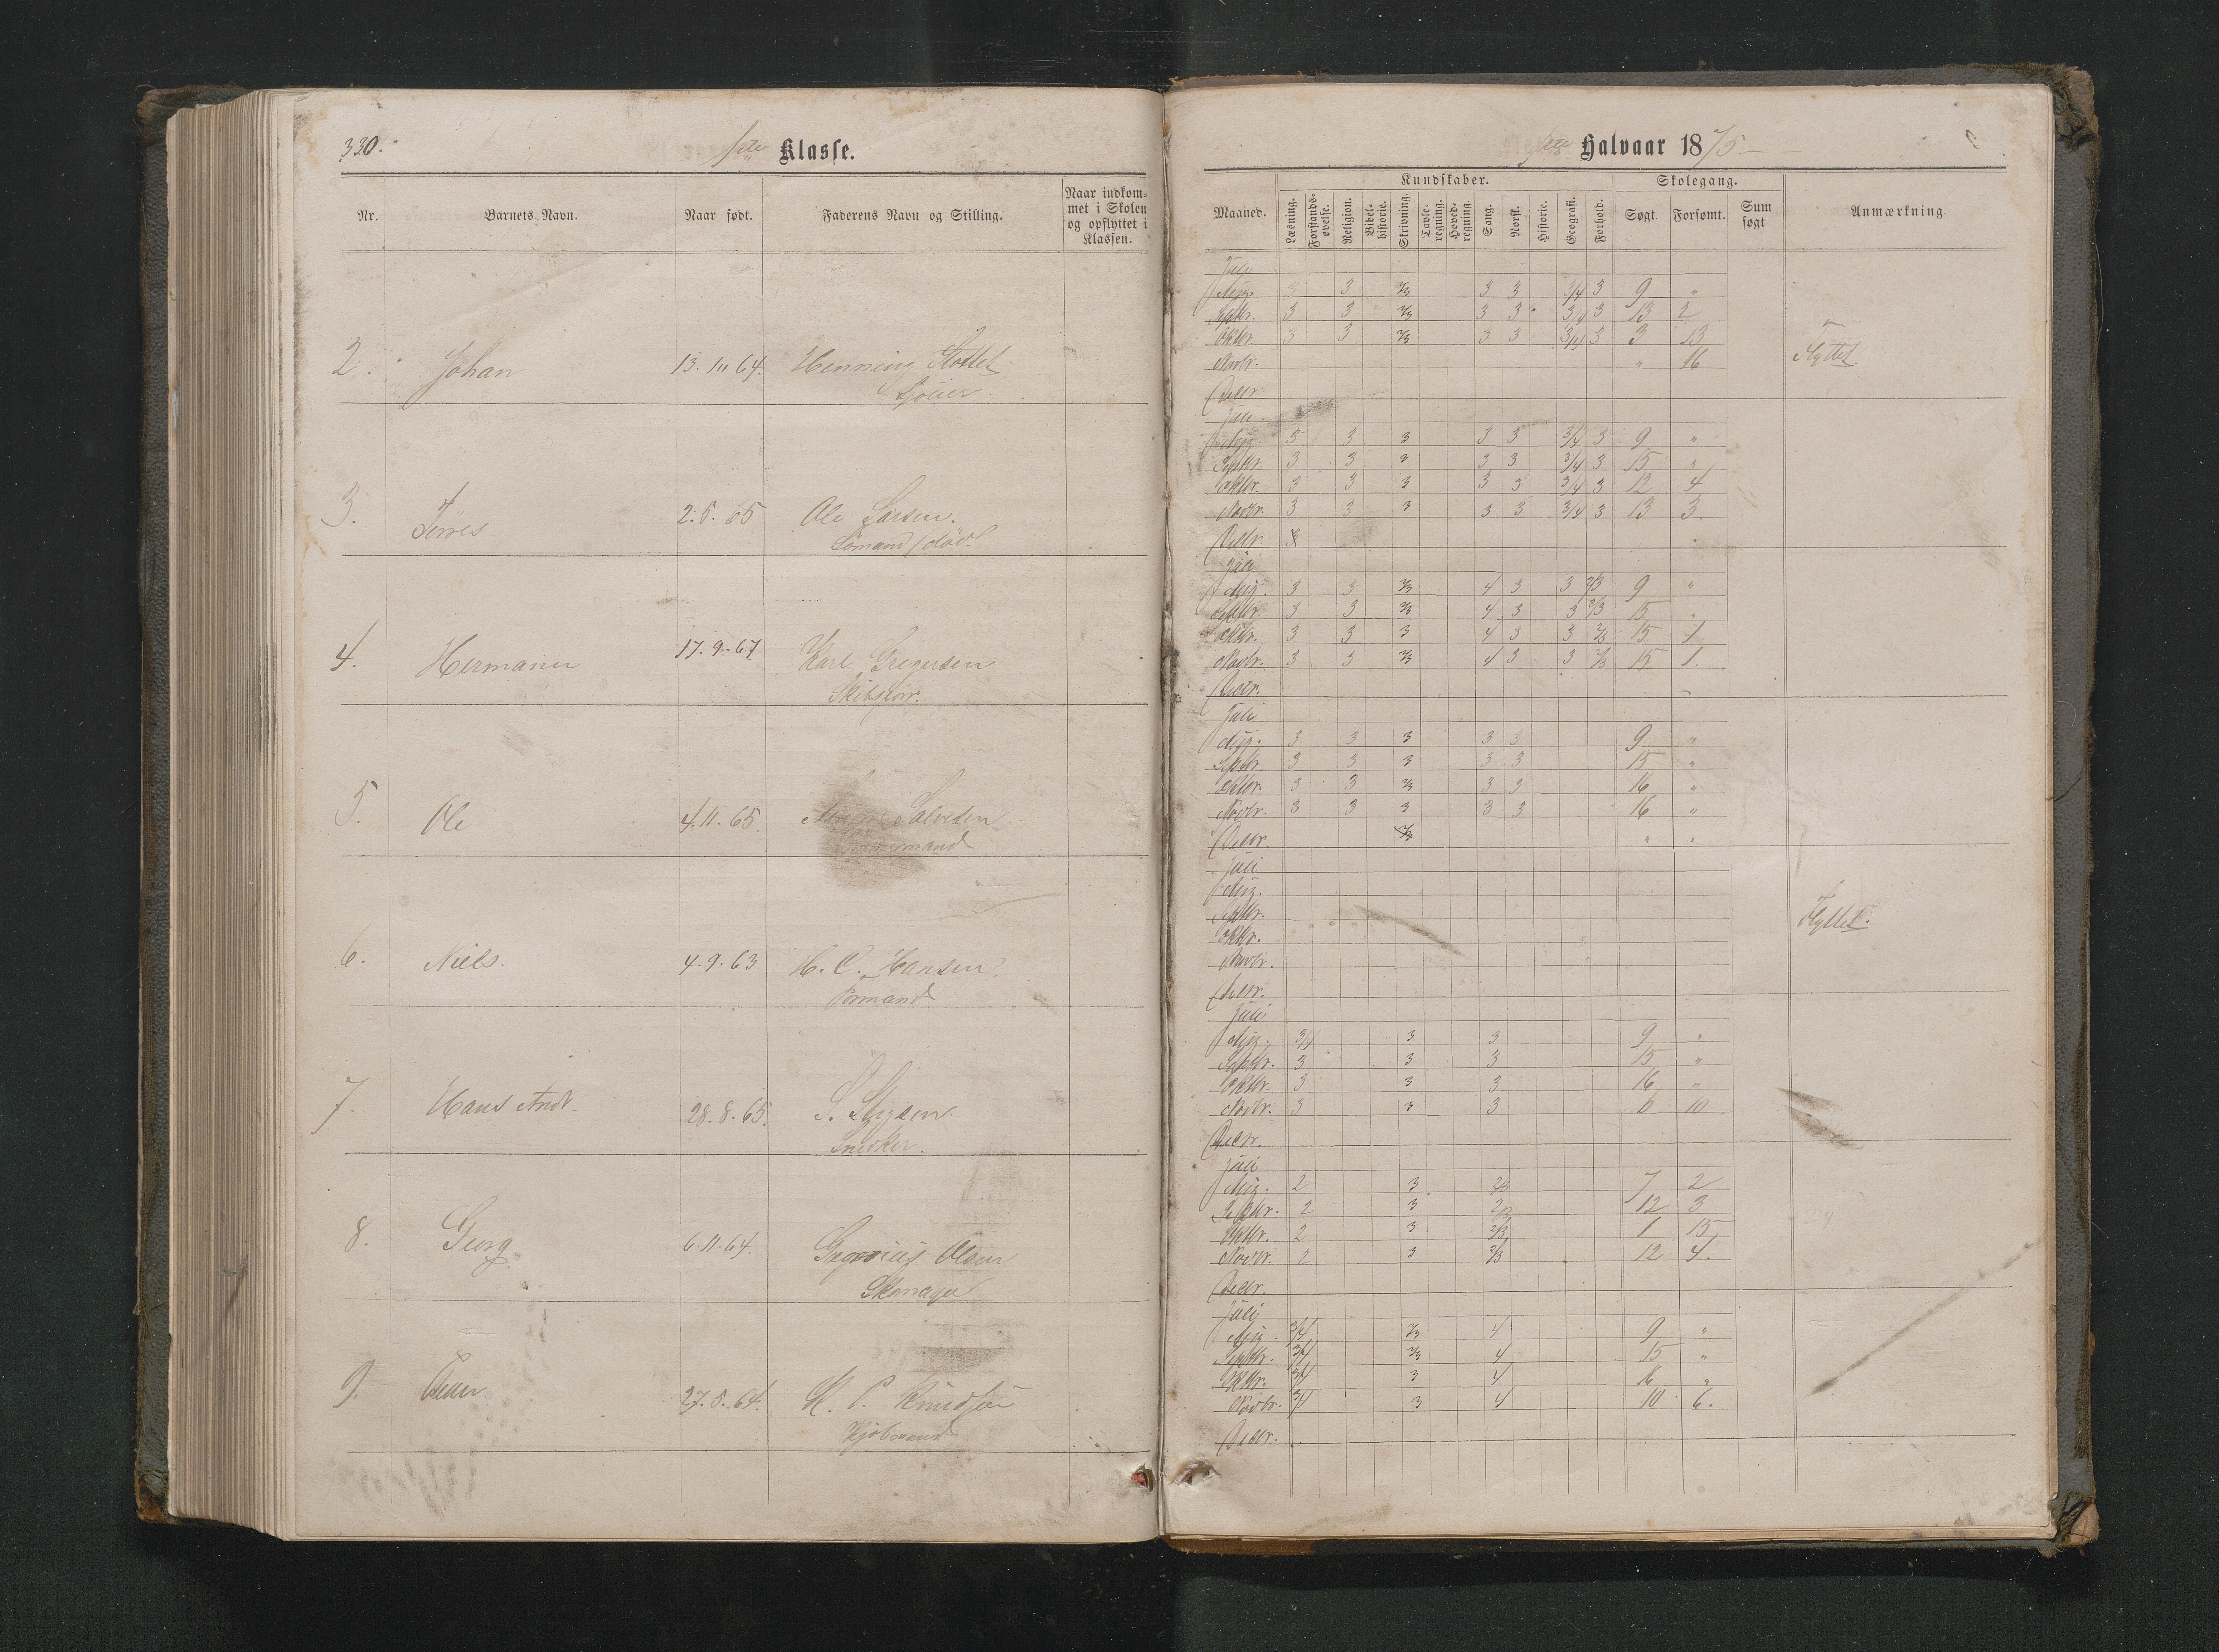 330.
1ste Klasse.
Nr. Barnets Navn. Naar født. Faderens Navn og Stilling. Naar indkommet i Skolen og opflyttet i Klassen.
2. Johan 13. 64. Henning
3. 2.5.65 Ole Larsen.
Sömand / död.
4. Hermann 17.9.67 Karl Gregersen
5. Ole 4.11.65. Salvesen
6. Niels. 4.9.63 H. C. Hansen.
Formand
7. Hans Andr. 28.8.65. S.
Snedker.
8. Georg 6.11.64. Olsen
Skomager
9. Peder 27.5.64. Knudsen
Kjöbmand
Halvaar 1875.
Maaned. Kundskaber. Skolegang. Anmærkning.
Læsning. Forstandsøvelse. Religion. Bibelhistorie. Skrivning. Tavleregning. Hovedregning. Sang. Norsk. Historie. Geografi. Forhold. Søgt. Forsømt. Sum søgt
Juli
Aug. 3 3 2/3 3 3 3/4 3 9 "
Septbr. 3 3 2/3 3 3 3/4 3 13 2
Oktbr. 3 3 2/3 3 3 3/4 3 3 13
Novbr. " 16 Flyttet.
Decbr.
Juli
Aug. 3 3 3 3 3 3/4 3 9 "
Septbr. 3 3 3 3 3 3/4 3 15 "
Oktbr. 3 3 3 3 3 3/4 3 12 4
Novbr. 3 3 3 3 3 3/4 3 13 3.
Decbr.
Juli
Aug. 3 3 2/3 4 3 3 2/3 9 "
Septbr. 3 3 2/3 4 3 3 2/3 15 "
Oktbr. 3 3 3 4 3 3 2/3 15 1
Novbr. 3 3 2/3 4 3 3 2/3 15 1.
Decbr.
Juli
Aug. 3 3 3 3 3 9 "
Septbr. 3 3 3 3 3 15 "
Oktbr. 3 3 2/3 3 3 16 "
Novbr. 3 3 3 3 3 16 "
Decbr. " "
Juli
Aug.
Septbr.
Oktbr. Flyttet.
Novbr.
Decbr.
Juli
Aug. 3/4 3 3 9 "
Septbr. 3 3 3 15 "
Oktbr. 3 3 3 16 "
Novbr. 3 3 3 6 10
Decbr.
Juli
Aug. 2 3 2/3 7 2
Septbr. 2 3 2/3 12 3
Oktbr. 2 3 2/3 1 15
Novbr. 2 3 2/3 12 4.
Decbr.
Juli
Aug. 3/4 2/3 4 9 "
Septbr. 3/4 2/3 4 15 "
Oktbr. 3/4 3 4 16 "
Novbr. 3/4 3 4 10 6.
Decbr.